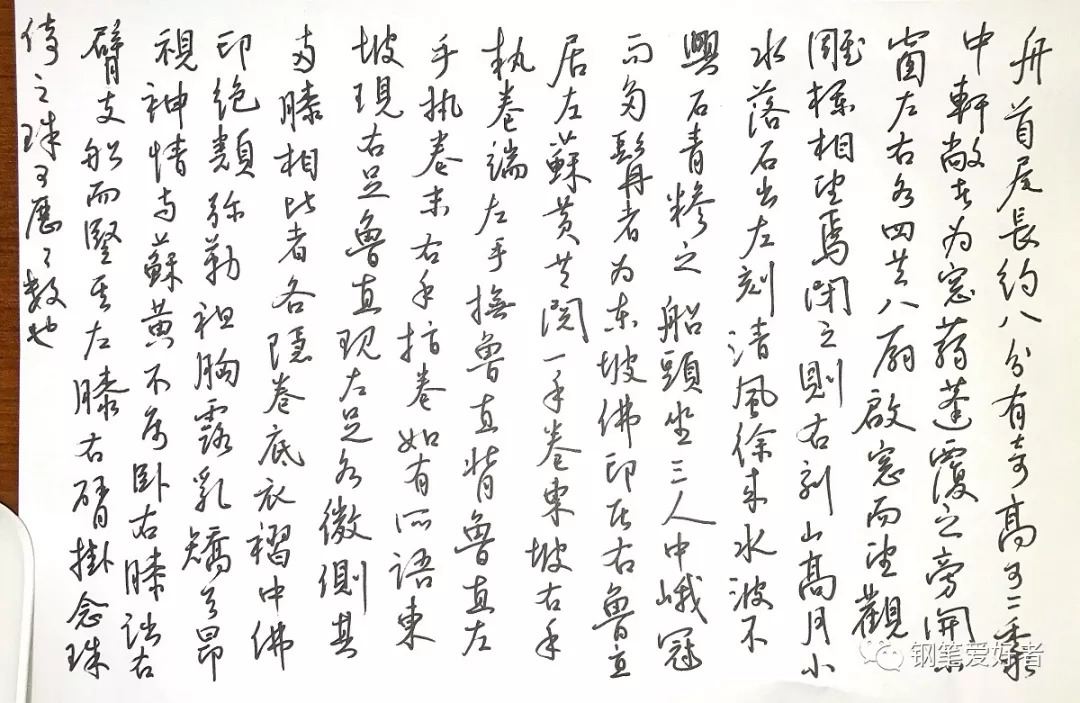 舟首尾長約八分有奇高可二黍
中軒敞者为窓蒻蓬覆之旁開小
窗左右各四共八扇啟窓而望觀
雕欄相望焉閉之則右刻山高月小
水落石出左刻清風徐来水波不
興石青糝之船頭坐三人中峨冠
而多髯者为东坡佛印居右魯直
居左蘇黄共閲一手卷東坡右手
执卷端左手撫魯直背魯直左
手执卷末右手指卷如有所語東
坡現右足魯直現左足各微側其
两膝相比者各隱卷底衣褶中佛
印绝類弥勒袒胸露乳矯首昂
視神情与蘇黄不属卧右膝詘右
臂支船而竪其左膝右臂掛念珠
倚之珠可歷々數也
钢笔爱好者